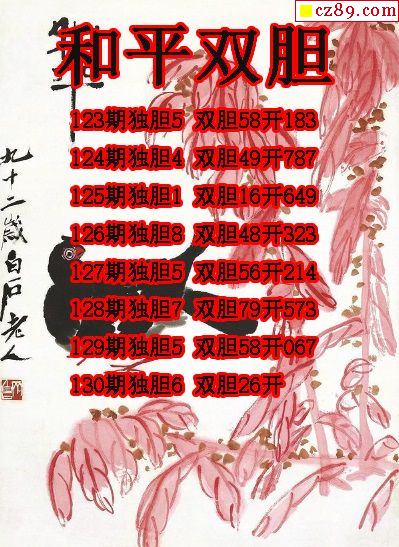 cz89.com
和平双胆
123期独胆5 双胆58开183
124期独胆4 双胆49开787
125期独胆1 双胆16开649
126期独胆8 双胆48开323
127期独胆5 双胆56开214
128期独胆7 双胆79开573
129期独胆5 双胆58开067
130期独胆6 双胆26开
九十二岁白石老人